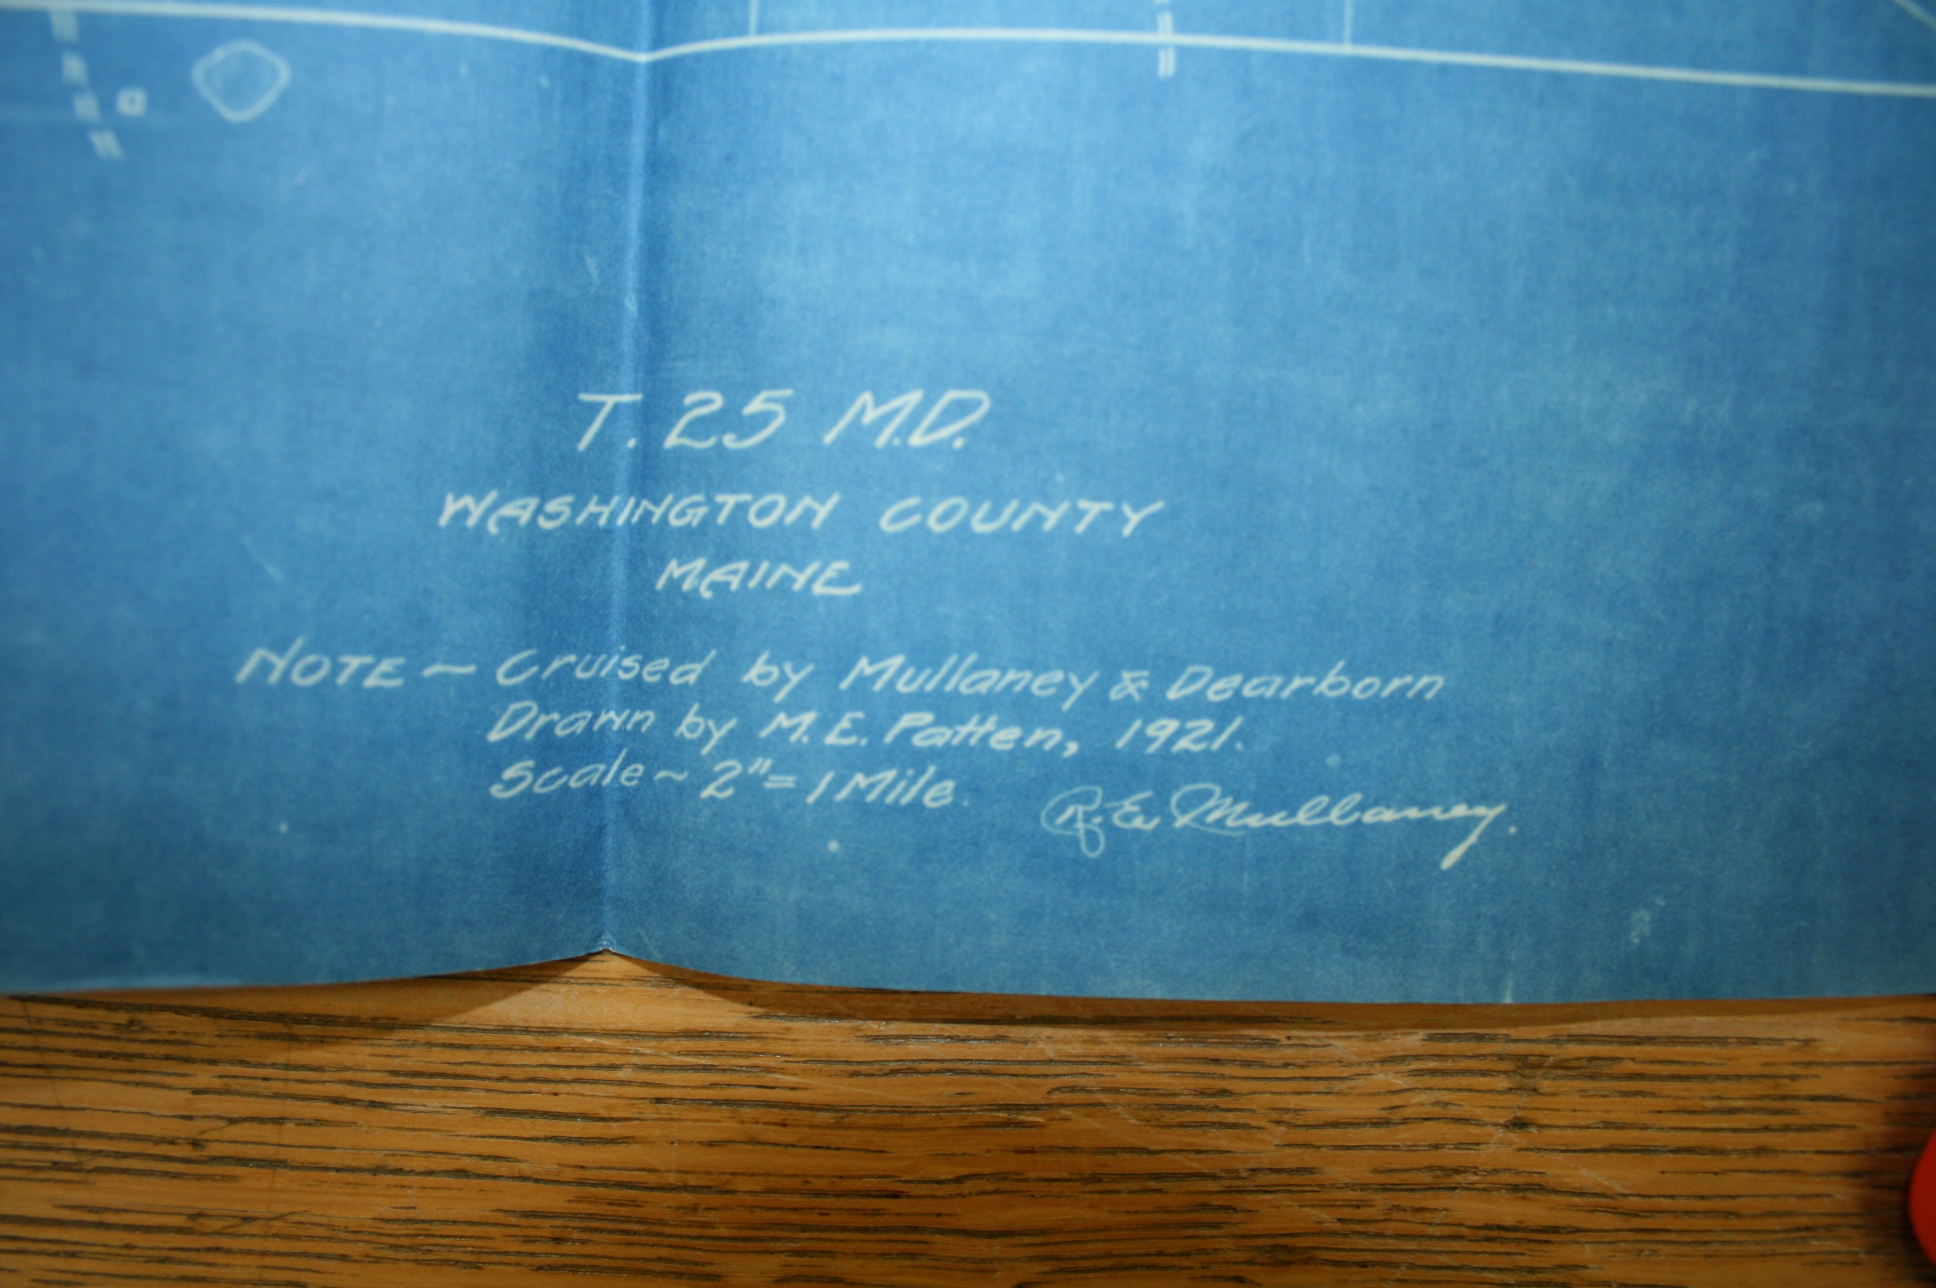 T. 25 M.D.
WASHINGTON COUNTY
MAINE
NOTE ~ Cruised by Mullaney & Dearborn
Drawn by M. E. Patten, 1921.
Scale ~ 2" = 1 Mile.
R. E. Mullaney.